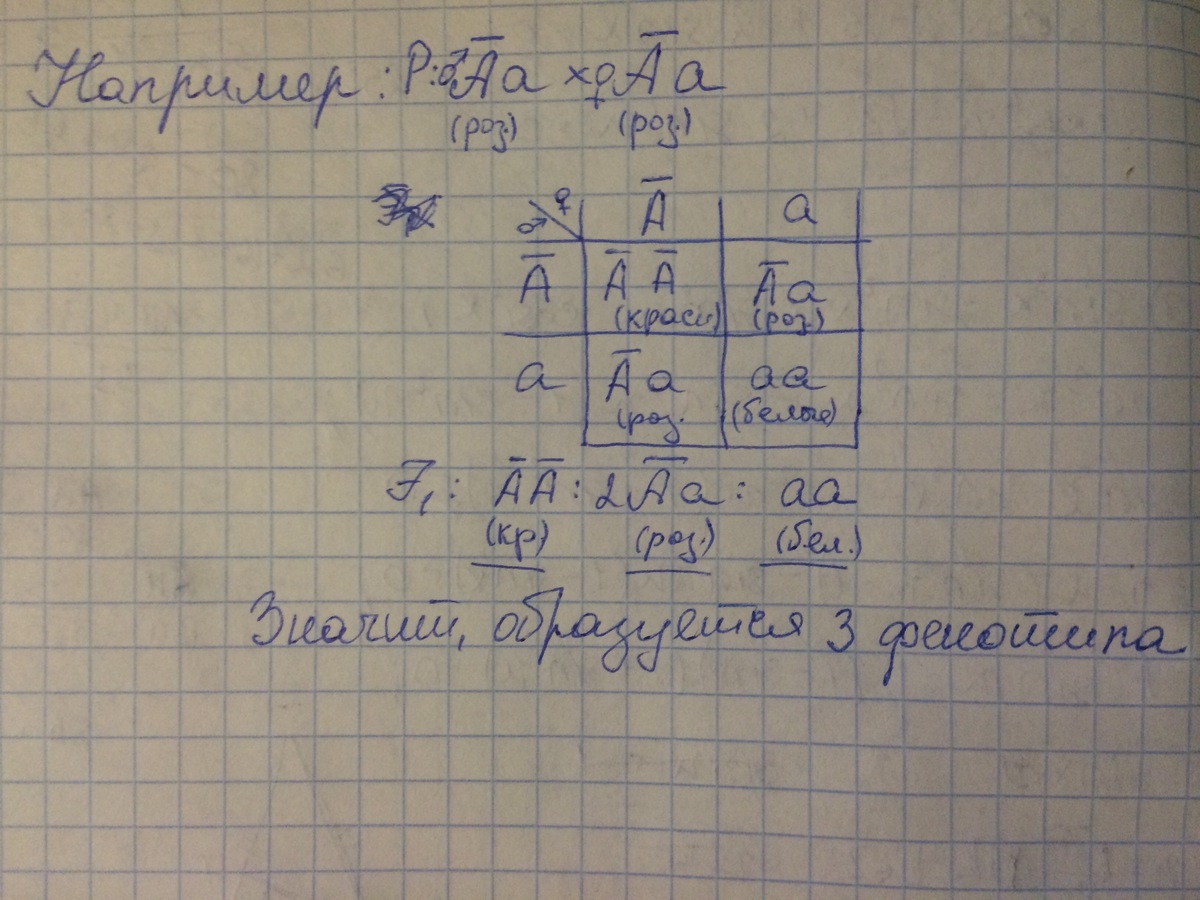 Например: P: ♂ A̅a × ♀ A̅a
(роз.) (роз.)
♀ ♂ A̅ a
A̅ A̅A̅ A̅a
(красн) (роз.)
a A̅a aa
(роз. (белые)
F₁: A̅A̅ : 2A̅a : aa
(кр) (роз.) (бел.)
Значит, образуется 3 фенотипа